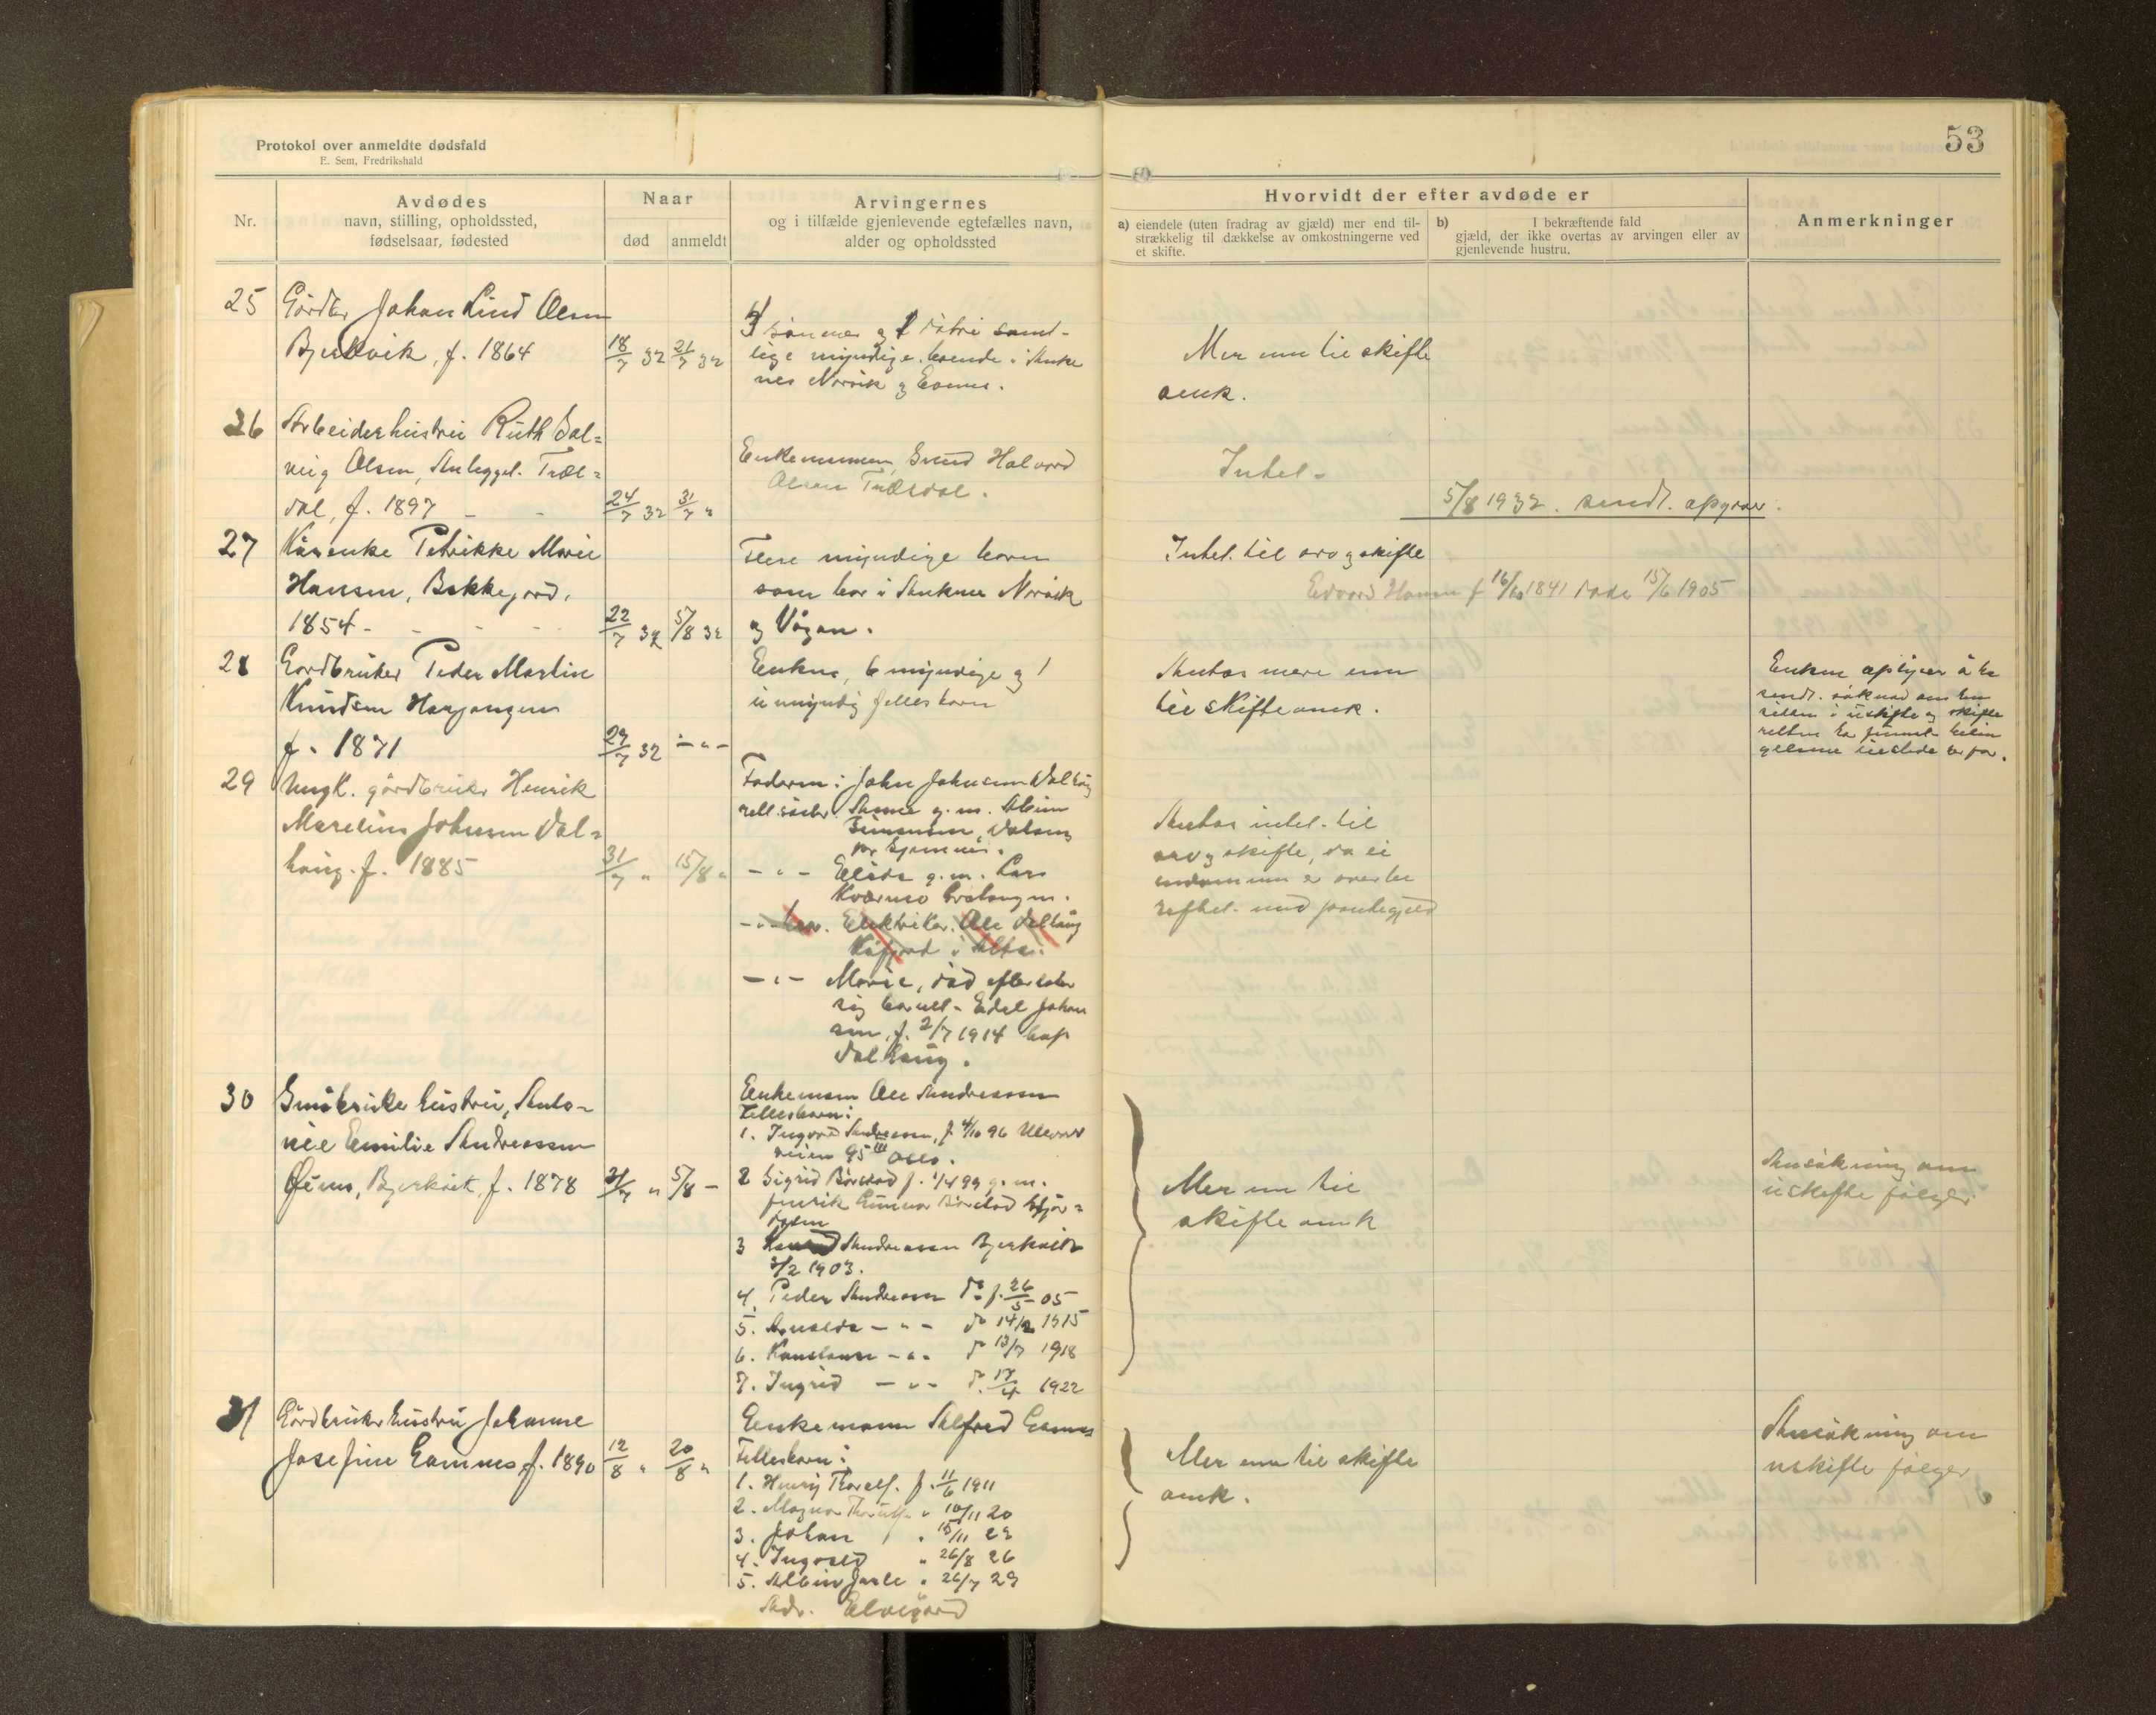 Protokol over anmeldte dødsfald
E. Sem, Fredrikshald
53
Nr.
Avdødes
navn, stilling, opholdssted,
fødselsaar, fødested
Naar
død
anmeldt
Arvingernes
og i tilfælde gjenlevende egtefælles navn,
alder og opholdssted
Hvorvidt der efter avdøde er
a) eiendele (uten fradrag av gjæld) mer end til-
strækkelig til dækkelse av omkostningerne ved
et skifte.
b) I bekræftende fald
gjæld, der ikke overtas av arvingen eller av
gjenlevende hustru.
Anmerkninger
25 Gårdbr Johan Lind Olsen
Bjerkvik, f. 1864
18/7 32 21/7 32
4 sönner og 1 datter samt-
lige myndige boende i Anke
nes Narvik og
Mer enn til skifte
omk.
26 Arbeiderhustru Ruth Sol=
veig Olsen, Anlegget. Træl=
dal, f. 1897
24/7 32 31/7 "
Enkemannen, Halvard
Olsen Trældal.
Intet -
5/8 1932. sendt. opgav.
27 Kårenke Petrikke Marie
Hansen, Bakkejord,
1854 - - - -
22/7 32 5/8 32
Flere myndige barn
som bor i Ankenes Narvik
og Vågan.
Intet til arv og skifte
Edvard Hansen f 16/10 1841 døde 15/6 1905
28 Gårdbruker Peder Martin
Knudsen Herjangen
f. 1871
29/7 32 - " -
Enken, 6 myndige og 1
umyndig felles barn
Antas mere enn
til skifteomk.
Enken oplyser å ha
sendt. søknad om hen
sitten i uskifte og skifte
retten har funnet betin
gelsene tilstede herfor.
29 Ungk. gårdbruker Henrik
Marelius Johnsen Dal=
haug. f. 1885
31/7 " 15/8 "
Faderen: John Johnsen Dalhaug
hell søster Anne g. m. Albin
Simonsen,
- " - Elida g. m. Lars
Kværnmo
- " - bror. Elektriker. Ole Dalhaug
Kåfjord i Alta.
- " - Marie, død efterlater
sig barnet - Edel Johan
sen, f. 2/7 1914 
Dalhaug.
Antas intet til
arv og skifte, da ei
endommen er overbe
heftet med pantegjeld
30 Småbrukerhustru, Anto-
nie Emilie Andreassen
Øines, Bjerkvik, f. 1878
31/7 " 5/8 -
Enkemann Ole Andreassen
Fellesbarn:
1. Ingvard Andreassen, f 4/10 96
veien 95 III Oslo.
2 Sigrid Børstad f. 1/4 99 g. m.
Fredrik Gunnar Børstad
3 Andreassen Bjerkvik
3/2 1903.
4. Peder Andreassen do f. 26/5 05
5. - " - do 14/2 1915
6. Konstanse - " - do 13/7 1918
7. Ingrid - " - d. 17/4 1922
Mer enn til
skifte omk
Ansökning om
uskifte fölger
31 Gårdbrukerhustru Johanne
Josefine Gamnes, f. 1890
12/8 " 20/8 "
Enkemann Alfred Gamnes
Fellesbarn:
1. Henry Thoralf. f. 11/6 1911
2. Magnar " 10/11 20
3. Johan " 15/11 23
4. Ingvald " 26/8 26
5. Albin Jarle " 26/7 29
Adr. Elvegård
Mer enn til skifte
omk.
Ansökning om
uskifte fölger